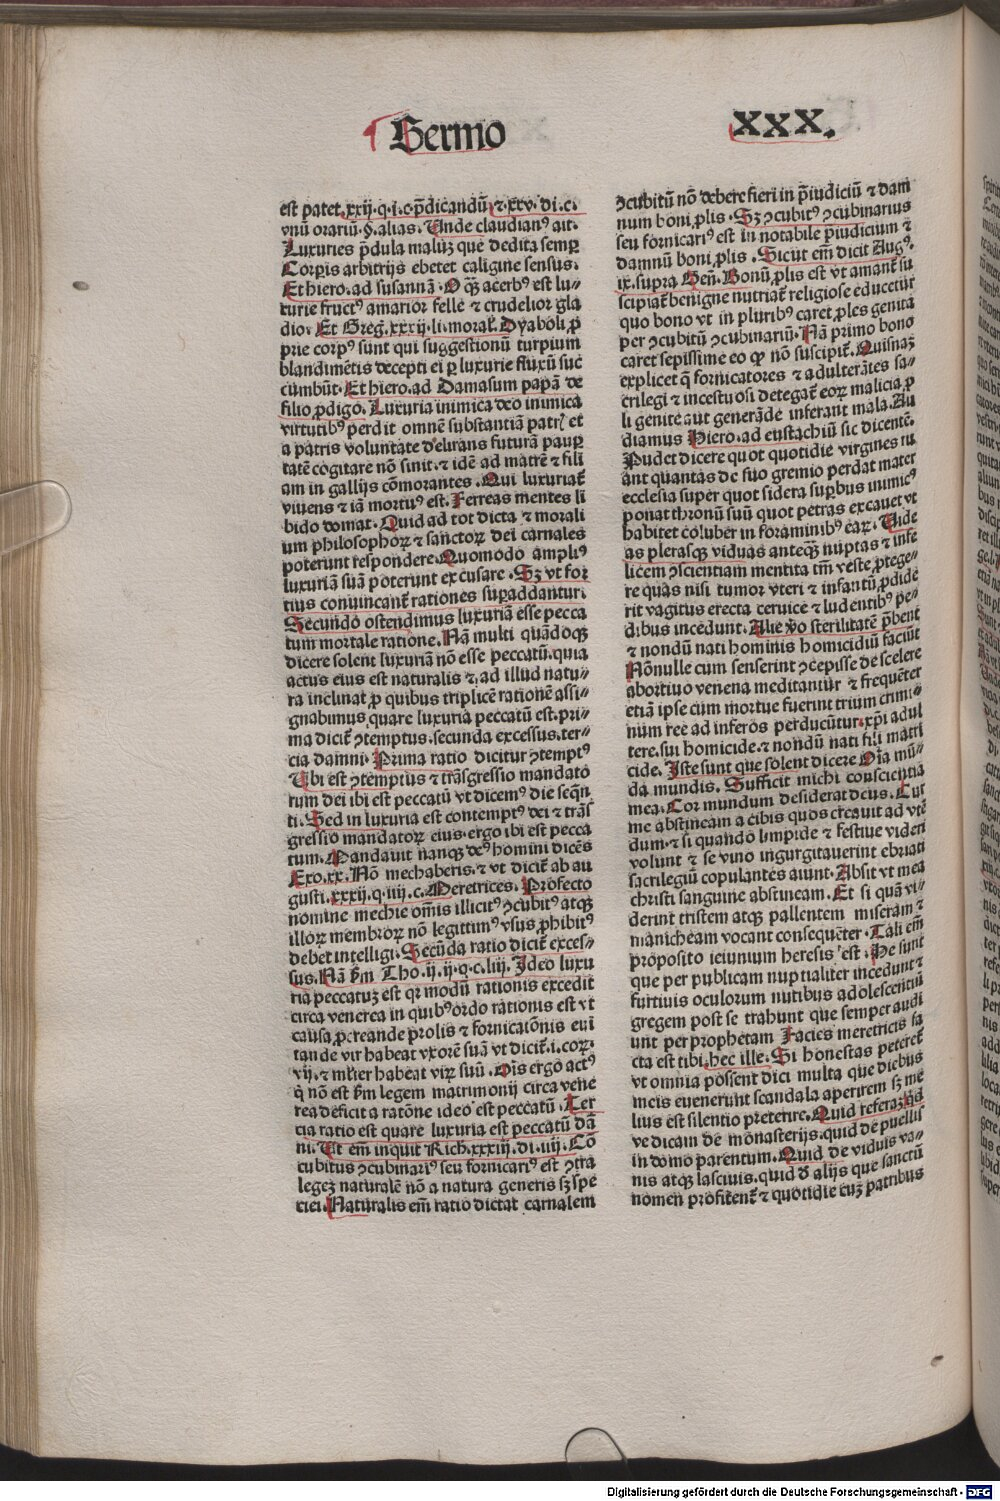 Sermo
XXX.
est patet. xxij. q. i. c. p̄dicandū. ⁊. xxv. di. c.
vnū orariū. §. alias. Unde claudianꝰ ait.
Luxuries p̄dula malūꝫ que dedita semꝑ
Corꝑis arbitrijs ebetet caligine sensus.
Et hiero. ad susannā. O qꝫ acerbꝰ est lu⸗
xurie fructꝰ amarior felle ⁊ crudelior gla
dio. Et Greg. xxxij. li. moral̓. Dyaboli ꝓ
prie corpꝰ sunt qui suggestionū turpium
blandimētis decepti ei ꝑ luxurie fluxū suc
cūmbūt. Et hiero. ad Damasum papā de
filio ꝓdigo. Luxuria inimica deo inimica
virtutibꝰ perdit omnē substantiā patrꝭ et
a patris voluntate delurans futurā pauꝑ
tatē cogitare nō sinit. ⁊ idē ad matrē ⁊ fili
am in gallijs cōmorantes. Qui luxuriat̄
viuens ⁊ iā mortuꝰ est. Ferreas mentes li
bido domat. Quid ad tot dicta ⁊ morali
um philosophoꝝ ⁊ sanctoꝝ dei carnales
poterunt respondere. Quomodo ampliꝰ
luxuriā suā poterunt excusare. Sꝫ vt for
tius conuincant̄ rationes suꝑaddantur.
Secundo ostendimus luxuriā esse pecca
tum mortale ratione. Nā multi quādoqꝫ
dicere solent luxuriā nō esse peccatū. quia
actus eius est naturalis ⁊. ad illud natu⸗
ra inclinat ꝓ quibus triplicē rationē assi⸗
gnabimus quare luxuria peccatū est. pri⸗
ma dicit̄ ꝯtemptus. secunda excessus. ter⸗
cia damni. Prima ratio dicitur ꝯtemptꝰ
Ubi est ꝯtemptus ⁊ trāsgressio mandato
rum dei ibi est peccatū vt dicemꝰ die seqn̄
ti. Sed in luxuria est contemptꝰ dei ⁊ trāſ
gressio mandatoꝝ eius. ergo ibi est pecca
tum. Mandauit nanqꝫ deꝰ homini dicēs
Exo. xx. Nō mechaberis. ⁊ vt dicit̄ ab au
gusti. xxxij. q. iiij. c. Meretrices. Profecto
nomine mechie om̄is illicitꝰ ꝯcubitꝰ atqꝫ
illoꝝ membroꝝ nō legittimꝰ vsus ꝓhibitꝰ
debet intelligi. Secūda ratio dicit̄ exces⸗
sus. Nā ẜm Tho. ij. ij. q. c. liij. Ideo luxu
ria peccatuꝫ est qꝛ modū rationis excedit
circa venerea in quibꝰ ordo rationis est vt
causa ꝓcreande prolis ⁊ fornicatōnis eui
tande vir habeat vxorē suā vt dicit̄. i. coꝝ.
vij. ⁊ ml̓ier habeat viꝝ suū. Oīs ergo actꝰ
q̇ nō est ẜm legem matrimonij circa vene
rea deficit a ratōne ideo est peccatū. Ter
cia ratio est quare luxuria est peccatū dā
ni. Ut em̄ inquit Rich. xxxiij. di. iiij. Cō
cubitus ꝯcubinariꝰ seu fornicariꝰ est ꝯtra
legeꝫ naturalē nō a natura generis sꝫ spe
ciei. Naturalis em̄ ratio dictat carnalem
ꝯcubitū nō debere fieri in p̄iudiciū ⁊ dam
num boni ꝓlis. Sꝫ ꝯcubitꝰ ꝯcubinarius
seu fornicariꝰ est in notabile p̄iudicium ⁊
damnū boni ꝓlis. Sicut em̄ dicit Augꝰ.
ix. supra Gen̄. Bonū ꝓlis est vt amant̄ su
scipiat̄ benigne nutriat̄ religiose educetur
quo bono vt in pluribꝰ caret ꝓles genita
per ꝯcubitū ꝯcubinariū. Nā primo bono
caret sepissime eo ꝙ nō suscipit̄. Quisnaꝫ
explicet q̄ fornicatores ⁊ adulterātes sa⸗
crilegi ⁊ incestuosi detegat̄ eoꝝ malicia ꝓ
li genite aut generāde inferant mala. Au
diamus Hiero. ad eustachiū sic dicentē.
Pudet dicere quot quotidie virgines ru
ant quantas de suo gremio perdat mater
ecclesia super quot sidera suꝑbus inimicꝰ
ponat thronū suū quot petras excauet vt
habitet coluber in foraminibꝰ eaꝝ. Uide
as plerasqꝫ viduas anteqꝫ nuptas ⁊ infe
licem ꝯscientiam mentita tm̄ veste ꝓtege⸗
re quas nisi tumor vteri ⁊ infantū ꝓdide
rit vagitus erecta ceruice ⁊ ludentibꝰ pe⸗
dibus incedunt. Alie v̓o sterilitatē p̄bent
⁊ nondū nati hominis homicidiū faciūt
Nōnulle cum senserint ꝯcepisse de scelere
abortiuo venena meditantur ⁊ frequēter
etiā ipse cum mortue fuerint trium crimi⸗
num ree ad inferos perducūtur. xp̄i adul
tere. sui homicide. ⁊ nondū nati filij matri
cide. Iste sunt que solent dicere Oīa mū⸗
da mundis. Sufficit michi conscientia
mea. Cor mundum desiderat deus. Cur
me abstineam a cibis quos creauit ad vtē
dum. ⁊ si quando limpide ⁊ festiue videri
volunt ⁊ se vino ingurgitauerint ebriati
sacrilegiū copulantes aiunt. Absit vt mea
christi sanguine abstineam. Et si quā vi⸗
derint tristem atqꝫ pallentem miseram ⁊
manicheam vocant consequēter. Tali em̄
proposito ieiunium heresis est. He sunt
que per publicam nuptialiter incedunt ⁊
furtiuis oculorum nutibus adolescentiū
gregem post se trahunt que semper audi
unt per prophetam Facies meretricis fa
cta est tibi. hec ille. Si honestas peteret̄
vt omnia possent dici multa que diebus
meis euenerunt scandala aperirem sꝫ me
lius est silentio preterire. Quid referaꝫ qd̓
ve dicam de monasterijs. quid de puellis
in domo parentum. Quid de viduis va⸗
nis atqꝫ lasciuis. quid d̓ alijs que sanctū
nomen profitent̄ ⁊ quotidie cuꝫ patribus
Digitalisierung gefördert durch die Deutsche Forschungsgemeinschaft - DFG